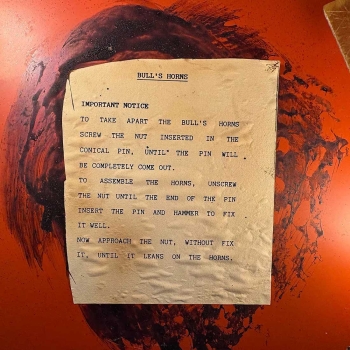 BULL'S HORNS
IMPORTANT NOTICE
TO TAKE APART THE BULL'S HORNS
SCREW THE NUT INSERTED IN THE
CONICAL PIN, UNTIL THE PIN WILL
BE COMPLETELY COME OUT.
TO ASSEMBLE THE HORNS, UNSCREW
THE NUT UNTIL THE END OF THE PIN
INSERT THE PIN AND HAMMER TO FIX
IT WELL.
NOW APPROACH THE NUT, WITHOUT FIX
IT, UNTIL IT LEANS ON THE HORNS.